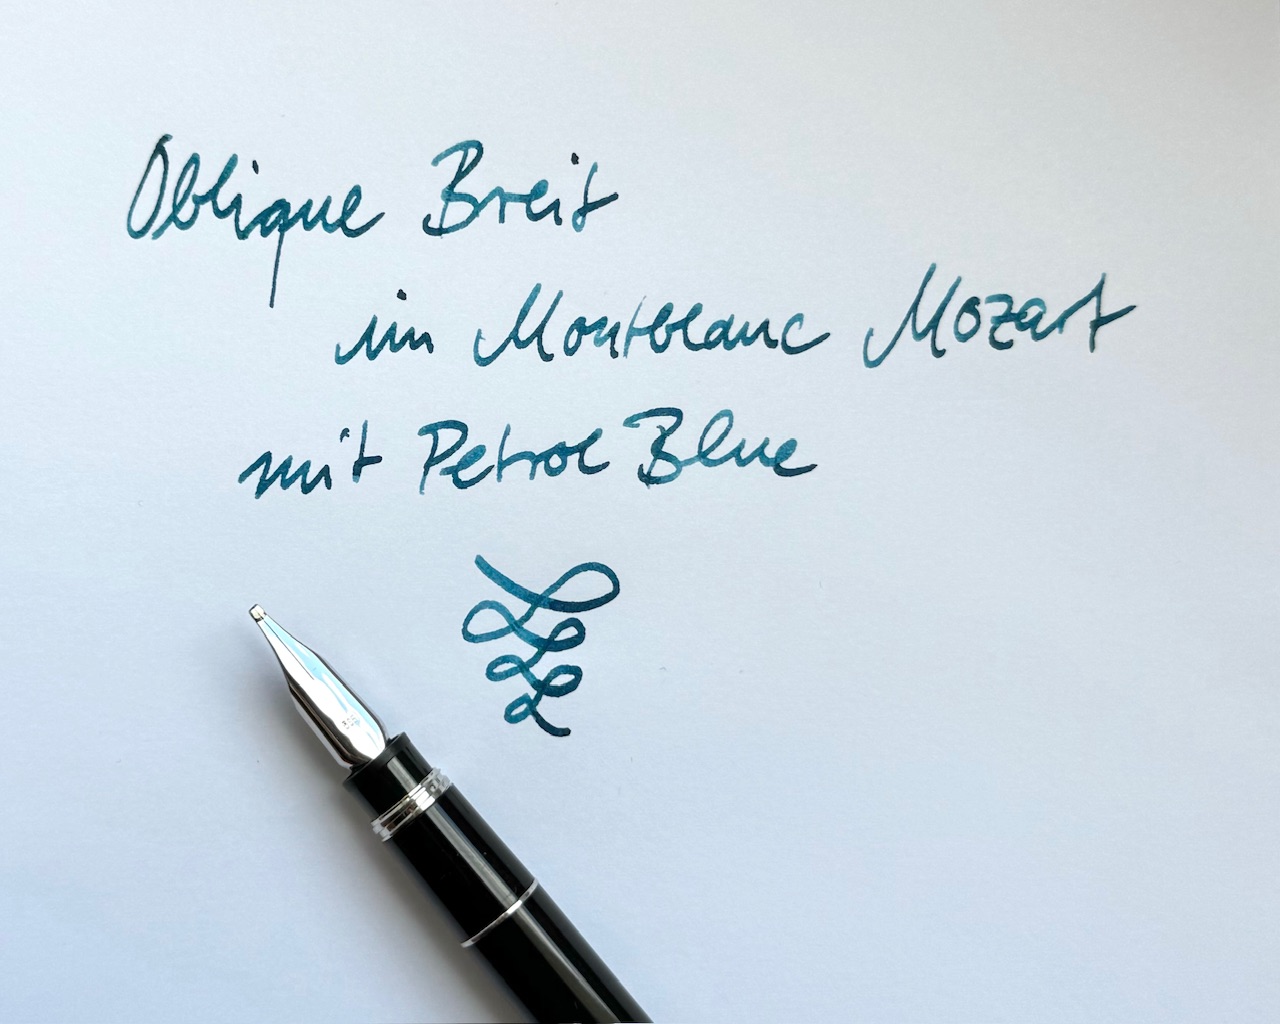 Oblique Breit
im Montblanc Mozart
mit Petrol Blue